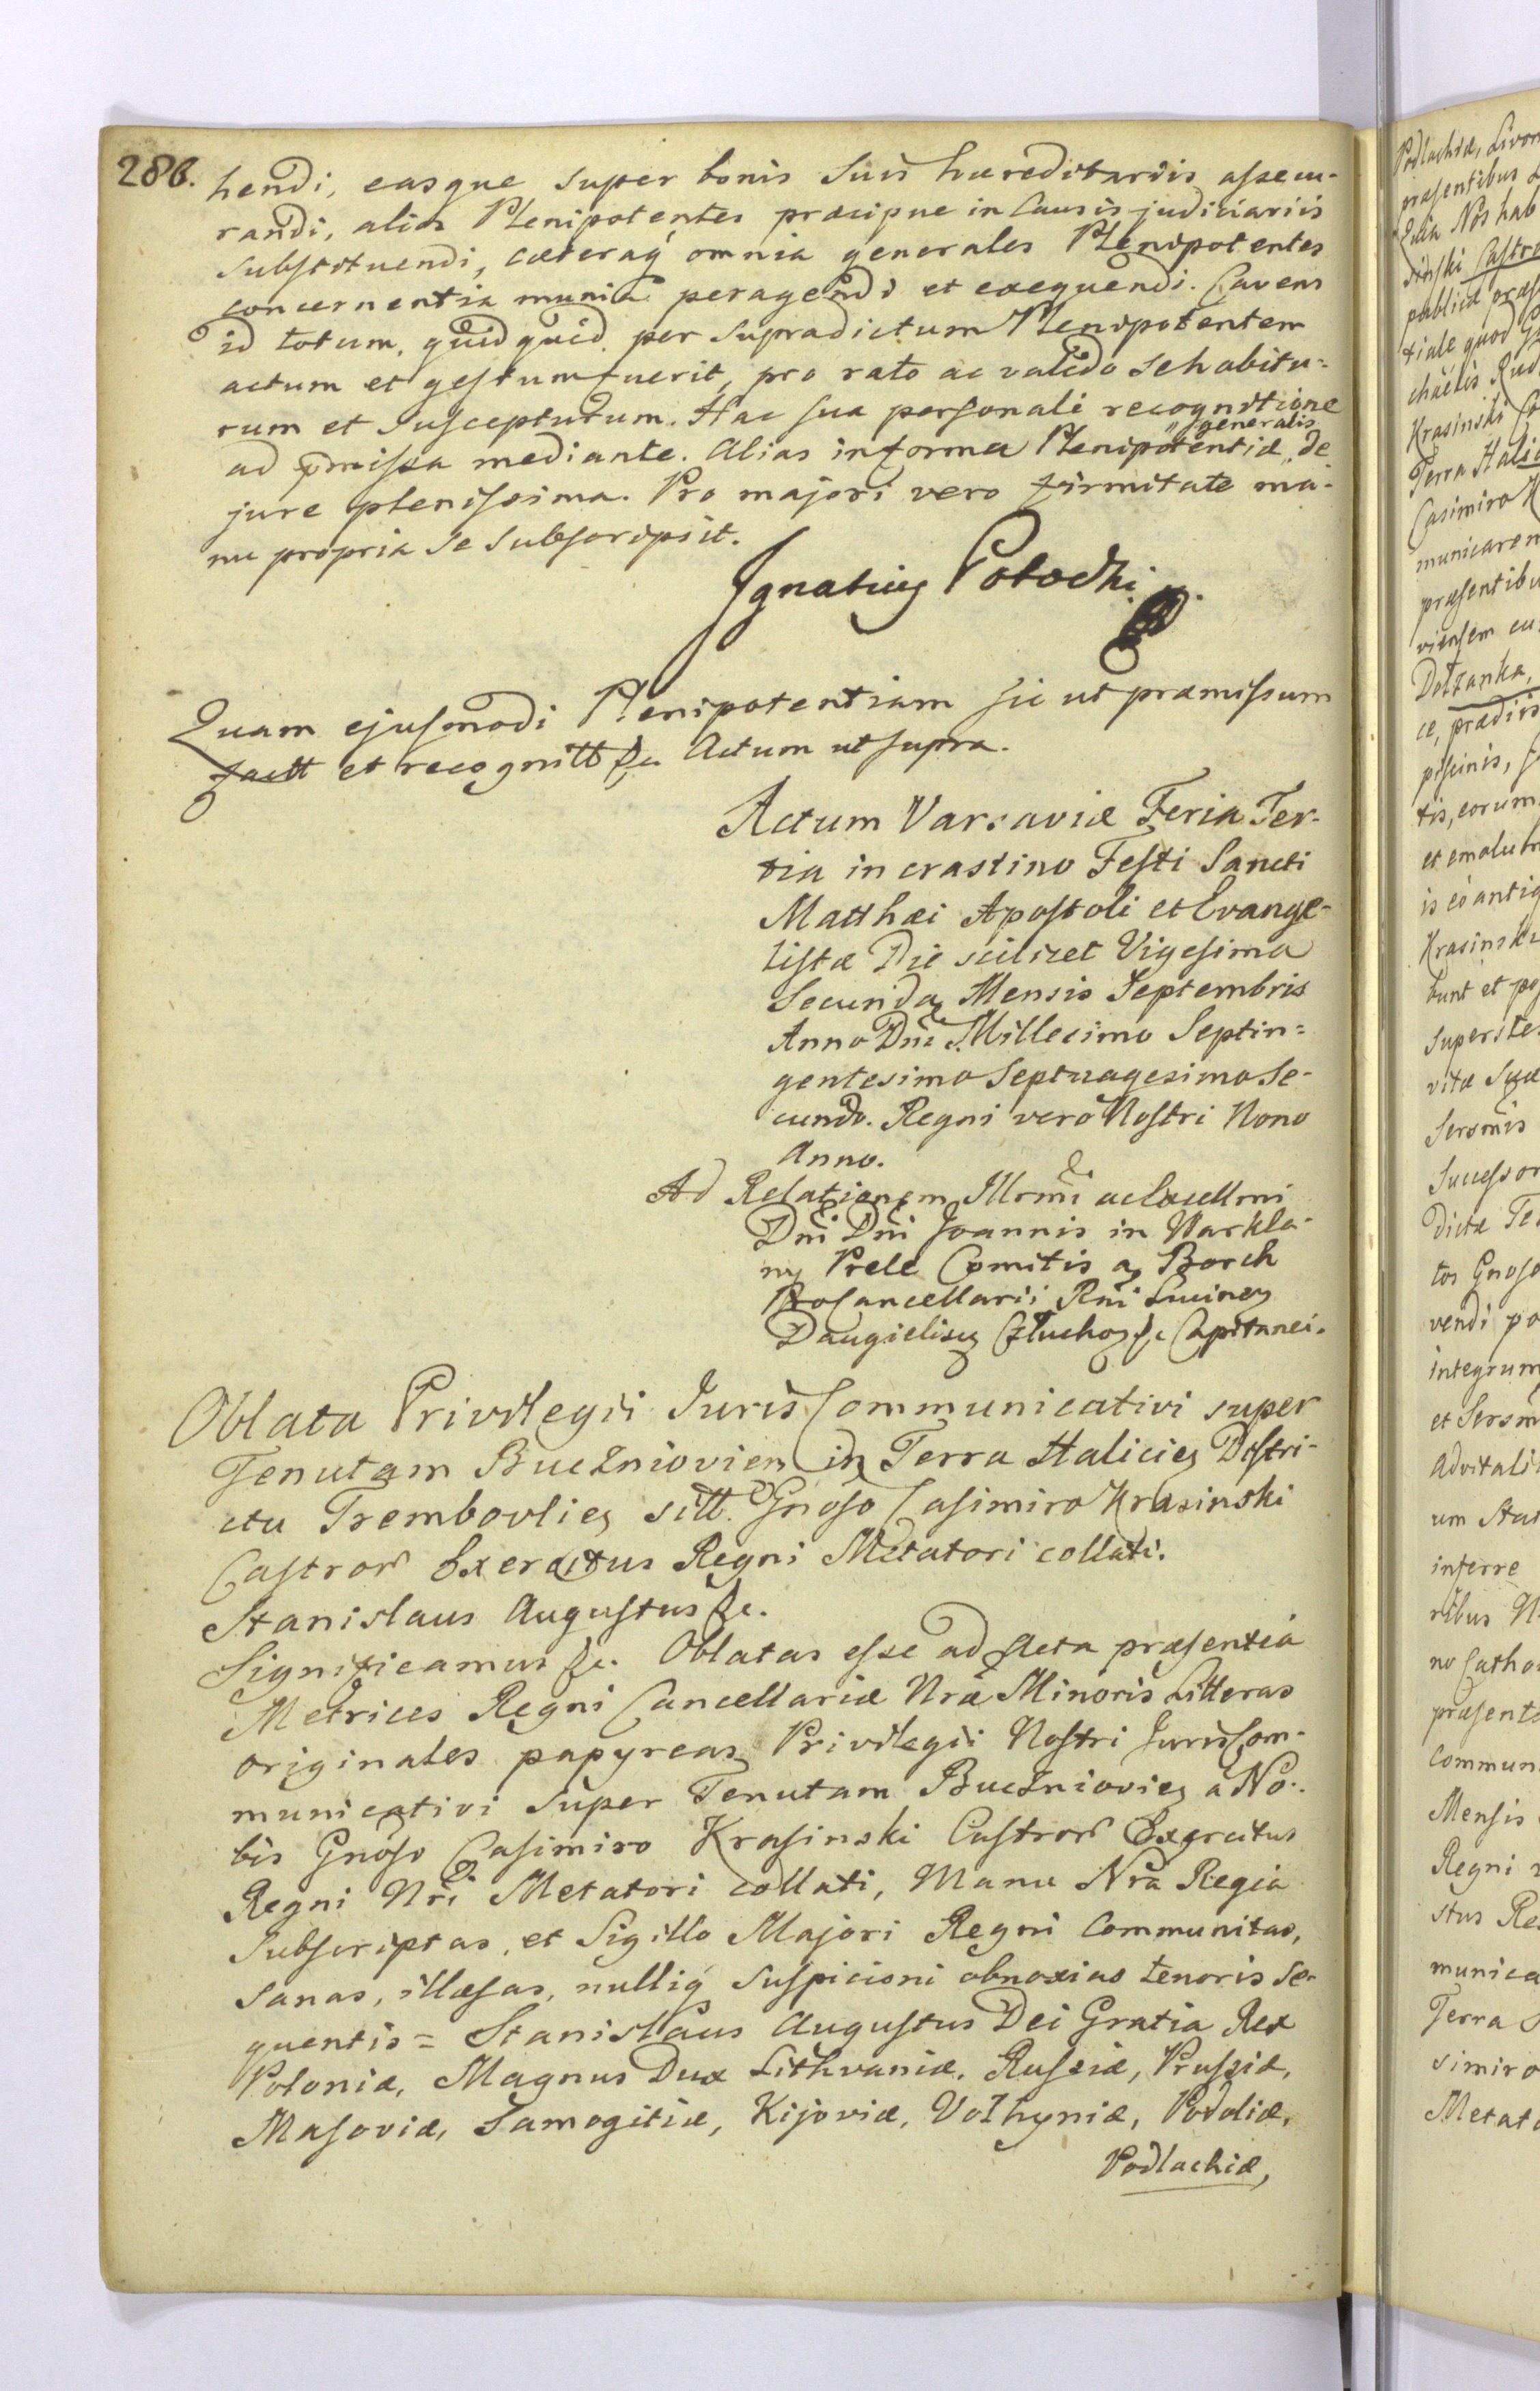 286.
hendi, easque super bonis suis hæreditariis assecu-
randi, alios Plenipotentes præcipue in Causis judiciariis
substituendi, cæteraq́ omnia generales Plenipotentes
concernentia munia peragendi et exequendi. Cavens
id totum, quidquid per supradictum Plenipotentem
actum et gestum fuerit, pro rato ac valido se habitu-
rum et suscepturum. Hac sua personali recognitione
ad pmissa mediante. Alias in forma Plenipotentiæ generalis de
jure plenissima. Pro majori vero firmitate ma-
nu propria se subscripsit.
Ignatius Potocki
Quam ejusmodi Plenipotentiam sic ut præmissum
factt et recognitt &c. Actum ut supra.
Actum Varsaviæ Feria Ter-
tia in crastino Festi Sancti
Matthæi Apostoli et Evange-
listæ Die scilicet Vigesima
Secunda Mensis Septembris
Anno Dni Millesimo Septin=
gentesimo Septuagesimo Se-
cundo. Regni vero Nostri Nono
Anno.
Ad Relationem Illrmi ac Excellmi
Dni Dni Joannis in Warkla-
ny Prele Comitis a Borch
ProCancellarii Rni Lucinen
Daugielisen Człuchoẅ &c Capitanei.
Oblata Privilegii Juris Communicativi super
Tenutam Buczniovien in Terra Halicien Distri-
ctu Trembovlien sitt. Gnoso Casimiro Krasinski
Castror Exercitus Regni Metatori collati.
Stanislaus Augustus &c.
Significamus &c. Oblatas esse ad Acta præsentia
Metrices Regni Cancellariæ Nræ Minoris Litteras
originales papyreas Privilegii Nostri Juris Com-
municativi super Tenutam Buczniovien a No-
bis Gnoso Casimiro Krasinski Castror Exercitus
Regni Nri Metatori collati, Manu Nra Regia
subscriptas, et Sigillo Majori Regni Communitas,
sanas, illæsas, nulliq́ suspicioni obnoxias tenoris se-
quentis = Stanislaus Augustus Dei Gratia Rex
Poloniæ, Magnus Dux Lithvaniæ, Russiæ, Prussiæ,
Masoviæ, Samogitiæ, Kijoviæ, Volhyniæ, Podoliæ,
Podlachiæ,
Podlachiæ, Livon
præsentibus
Quia Nos hab
sinski Castro
publica præs
tiale quod
chaelis Rud
Krasinski
Terra Halic
Casimiro K
municaren
præsentibu
viensem cu
Dołzanka,
ce, prædiis
piscinis,
tis, eorum
et emolum
is eo antiq
Krasinski
bunt et po
superste
vitæ suæ
Serenis
Successor
dicta Te
tos Gnoso
vendi po
integrum
et Sersm
Advitali
um Stat
inferre
ribus N
no Catho
præsente
Commun
Mensis
Regni
stus Re
munica
Terra
simiro
Metato